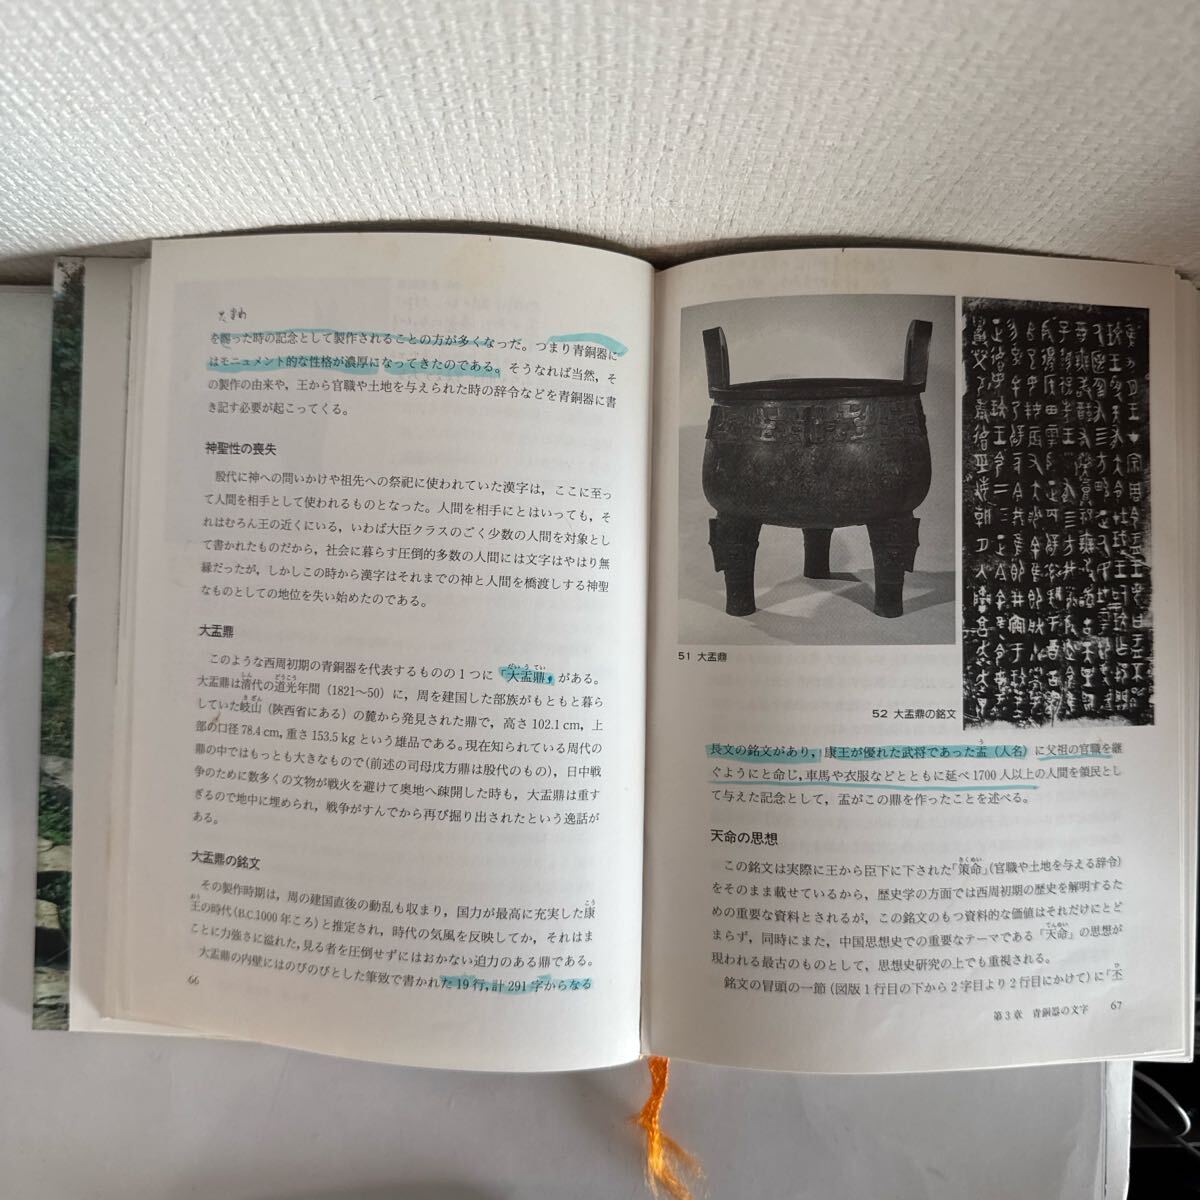 たまわ
を賜った時の記念として製作されることの方が多くなった。つまり青銅器に
はモニュメント的な性格が濃厚になってきたのである。そうなれば当然，そ
の製作の由来や，王から官職や土地を与えられた時の辞令などを青銅器に書
き記す必要が起こってくる。
神聖性の喪失
殷代に神への問いかけや祖先への祭祀に使われていた漢字は，ここに至っ
て人間を相手として使われるものとなった。人間を相手にとはいっても，そ
れはむろん王の近くにいる，いわば大臣クラスのごく少数の人間を対象とし
て書かれたものだから，社会に暮らす圧倒的多数の人間には文字はやはり無
縁だったが，しかしこの時から漢字はそれまでの神と人間を橋渡しする神聖
なものとしての地位を失い始めたのである。
大盂鼎
このような西周初期の青銅器を代表するものの1つに「大盂鼎」がある。
大盂鼎は清代の道光年間（1821〜50）に，周を建国した部族がもともと暮ら
していた岐山（陝西省にある）の麓から発見された鼎で，高さ102.1cm，上
部の口径78.4cm，重さ153.5kgという雄品である。現在知られている周代の
鼎の中ではもっとも大きなもので（前述の司母戊方鼎は殷代のもの），日中戦
争のために数多くの文物が戦火を避けて奥地へ疎開した時も，大盂鼎は重す
ぎるので地中に埋められ，戦争がすんでから再び掘り出されたという逸話が
ある。
大盂鼎の銘文
その製作時期は，周の建国直後の動乱も収まり，国力が最高に充実した康
王の時代（B.C.1000年ころ）と推定され，時代の気風を反映してか，それはま
ことに力強さに溢れた，見る者を圧倒せずにはおかない迫力のある鼎である。
大盂鼎の内壁にはのびのびとした筆致で書かれた19行，計291字からなる
66
51 大盂鼎
52 大盂鼎の銘文
長文の銘文があり，康王が優れた武将であった盂（人名）に父祖の官職を継
ぐようにと命じ，車馬や衣服などとともに延べ1700人以上の人間を領民とし
て与えた記念として，盂がこの鼎を作ったことを述べる。
天命の思想
この銘文は実際に王から臣下に下された「策命」（官職や土地を与える辞令）
をそのまま載せているから，歴史学の方面では西周初期の歴史を解明するた
めの重要な資料とされるが，この銘文のもつ資料的な価値はそれだけにとど
まらず，同時にまた，中国思想史での重要なテーマである「天命」の思想が
現われる最古のものとして，思想史研究の上でも重視される。
銘文の冒頭の一節（図版1行目の下から2字目より2行目にかけて）に「丕
第3章 青銅器の文字 67